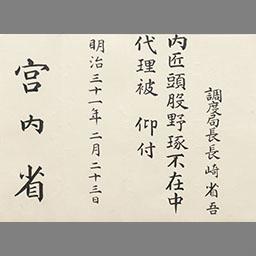 調度局長長崎省吾
内匠頭股野琢不在中
代理被 仰付
明治三十一年二月二十三日
宮内省